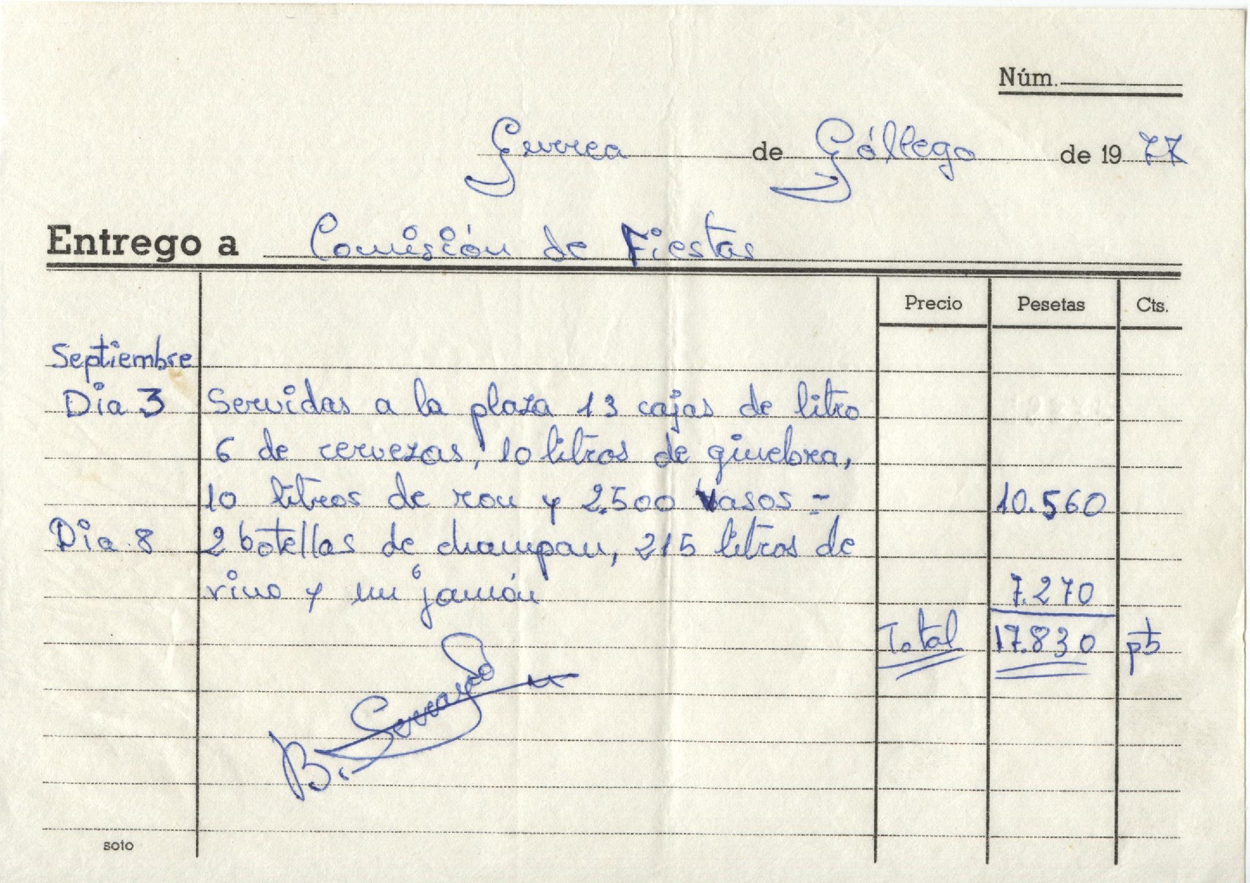 Núm.
Gurrea de Gállego de 1977
Entrego a Comisión de Fiestas
Precio Pesetas Cts.
Septiembre
Dia 3 Servidas a la plaza 13 cajas de litro
6 de cervezas, 10 litros de ginebra,
10 litros de ron y 2.500 Vasos = 10.560
Dia 8 2 botellas de champan, 215 litros de
vino y un jamón 7.270
Total 17.830 pts
B.
soto